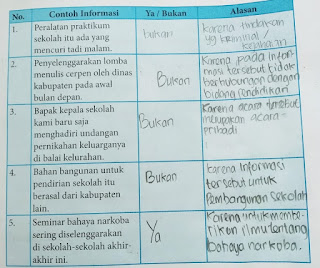 No. Contoh Informasi Ya / Bukan Alasan
1. Peralatan praktikum
sekolah itu ada yang
mencuri tadi malam.
bukan
karena tindakan
yg kriminal /
2. Penyelenggaraan lomba
menulis cerpen oleh dinas
kabupaten pada awal
bulan depan.
Bukan
Karena pada infor-
masi tersebut tidak
berhubungan dengan
bidang pendidikan
3. Bapak kepala sekolah
kami baru saja
menghadiri undangan
pernikahan keluarganya
di balai kelurahan.
Bukan
Karena acara tersebut
merupakan acara
pribadi
4. Bahan bangunan untuk
pendirian sekolah itu
berasal dari kabupaten
lain.
Bukan
karena Informasi
tersebut untuk
Pembangunan Sekolah
5. Seminar bahaya narkoba
sering diselenggarakan
di sekolah-sekolah akhir-
akhir ini.
Ya
Karena untuk membe-
rikan ilmu tentang
bahaya narkoba.